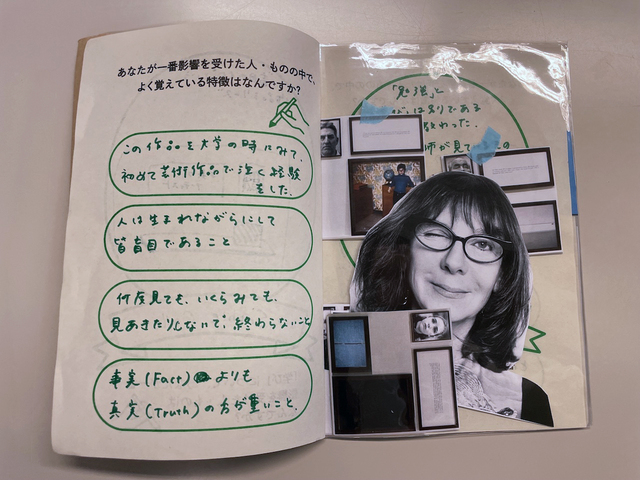 あなたが一番影響を受けた人・ものの中で、
よく覚えている特徴はなんですか?
この作品を大学の時にみて、
初めて芸術作品で泣く経験
をした.
人は生まれながらにして
皆盲目であること
何度見ても、いくらみても、
見あきたりしないで、終わらないこと
事実(Fact) よりも
真実(Truth)の方が重いこと.
「勉強」と
は別である
教わった.
師が見て
の